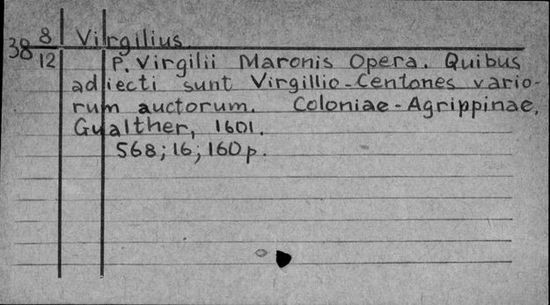 38 8/12 Virgilius.
P. Virgilii Maronis Opera. Quibus
adiecti sunt Virgillio-Centones vario-
rum auctorum. Coloniae-Agrippinae,
Gualther, 1601.
568; 16; 160 p.